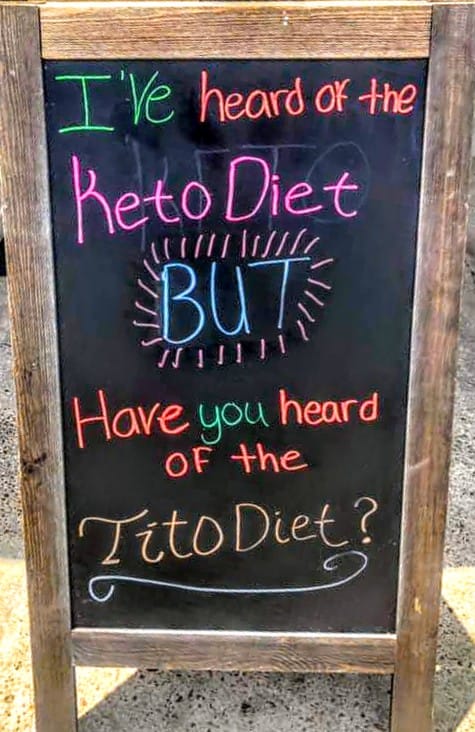 I've heard of the
Keto Diet
BUT
Have you heard
of the
Tito Diet?